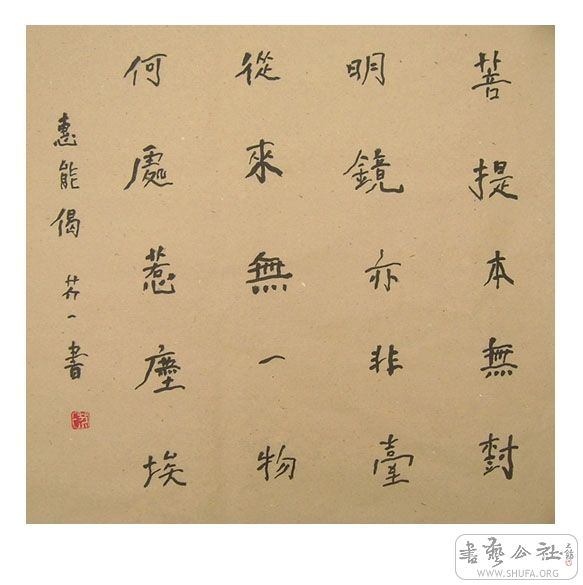 菩提本無樹
明鏡亦非臺
從來無一物
何處惹塵埃
惠能偈 芥一書
書藝公社
WWW.SHUFA.ORG